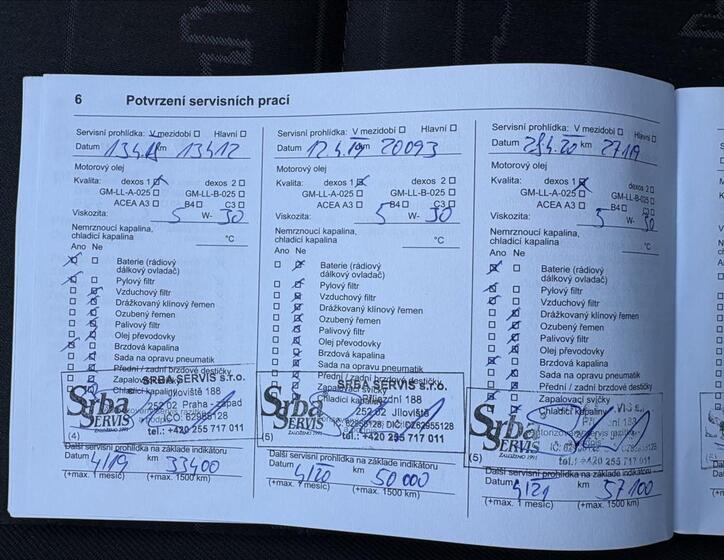 6 Potvrzení servisních prací
Servisní prohlídka: V mezidobí Hlavní
Datum 13.4.18 km 13412
Motorový olej
Kvalita: dexos 1 dexos 2
GM-LL-A-025 GM-LL-B-025
ACEA A3 B4 C3
Viskozita: 5 W- 30
Nemrznoucí kapalina,
chladicí kapalina °C
Ano Ne
Baterie (rádiový
dálkový ovladač)
Pylový filtr
Vzduchový filtr
Drážkovaný klínový řemen
Ozubený řemen
Palivový filtr
Olej převodovky
Brzdová kapalina
Sada na opravu pneumatik
Přední / zadní brzdové destičky
Zapalovací
Chladicí kapaliny
SRBA SERVIS s.r.o.
Jíloviště 188
252 02 Praha - západ
IČO: 62955128
tel.: +420 255 717 011
Srba
SERVIS
ZALOŽENO 1991
(4)
Další servisní prohlídka na základě indikátoru
Datum 4/19 km 33400
(+max. 1 měsíc) (+max. 1500 km)
Servisní prohlídka: V mezidobí Hlavní
Datum 12.4.19 km 20093
Motorový olej
Kvalita: dexos 1 dexos 2
GM-LL-A-025 GM-LL-B-025
ACEA A3 B4 C3
Viskozita: 5 W- 30
Nemrznoucí kapalina,
chladicí kapalina °C
Ano Ne
Baterie (rádiový
dálkový ovladač)
Pylový filtr
Vzduchový filtr
Drážkovaný klínový řemen
Ozubený řemen
Palivový filtr
Olej převodovky
Brzdová kapalina
Sada na opravu pneumatik
Přední / zadní brzdové destičky
Zapalovací svíčky
Chladicí kapaliny
SRBA SERVIS s.r.o.
Příjezdní 188
252 02 Jíloviště
IČ: 62955128, DIČ: CZ62955128
tel.: +420 255 717 011
Srba
SERVIS
ZALOŽENO 1991
(5)
Další servisní prohlídka na základě indikátoru
Datum 4/20 km 50 000
(+max. 1 měsíc) (+max. 1500 km)
Servisní prohlídka: V mezidobí Hlavní
Datum 28.4.20 km
Motorový olej
Kvalita: dexos 1 dexos 2
GM-LL-A-025 GM-LL-B-025
ACEA A3 B4 C3
Viskozita: 5 W- 30
Nemrznoucí kapalina,
chladicí kapalina °C
Ano Ne
Baterie (rádiový
dálkový ovladač)
Pylový filtr
Vzduchový filtr
Drážkovaný klínový řemen
Ozubený řemen
Palivový filtr
Olej převodovky
Brzdová kapalina
Sada na opravu pneumatik
Přední / zadní brzdové destičky
Zapalovací svíčky
Chladicí kapaliny
tel.: +420 255 717 011
Srba
SERVIS
ZALOŽENO 1991
(5)
Další servisní prohlídka na základě indikátoru
Datum 4/21 km 57100
(+max. 1 měsíc) (+max. 1500 km)